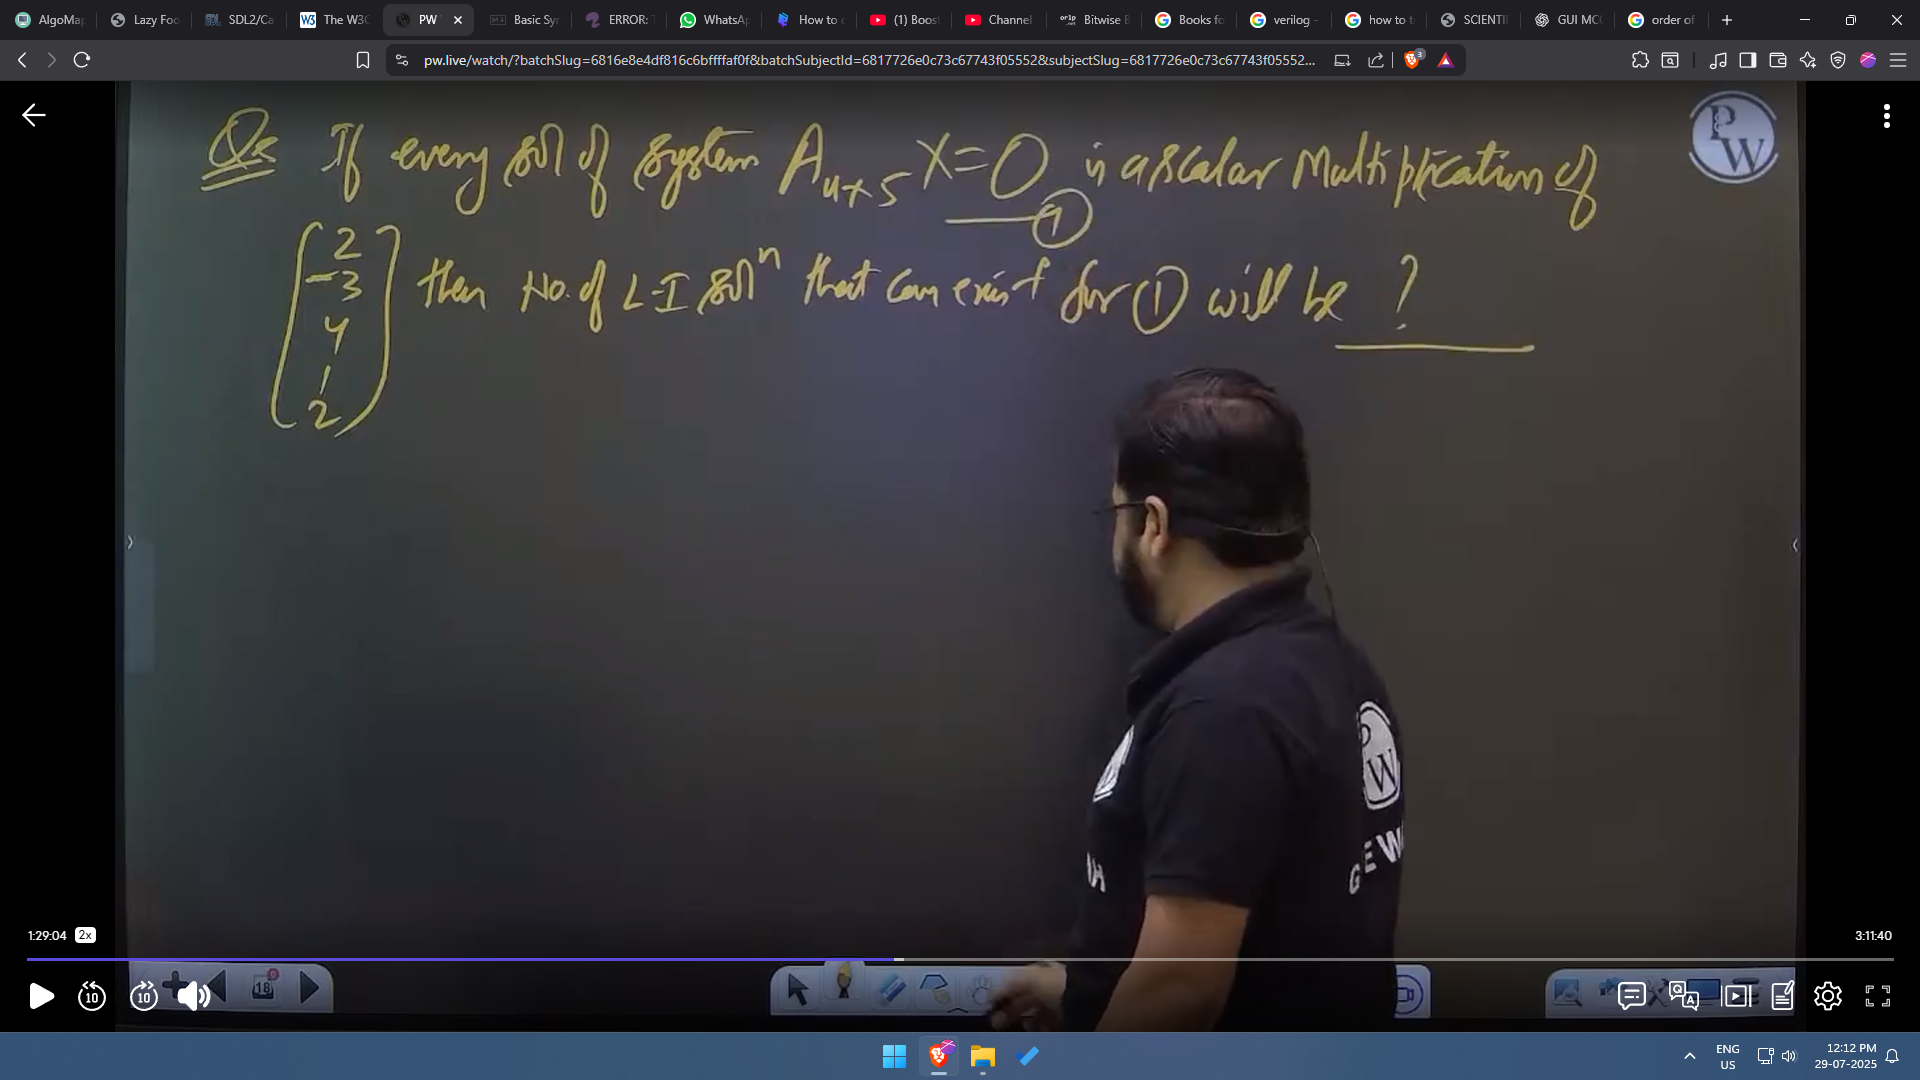 AlgoMap
Lazy Foo
SDL2/Ca
The W3C
PW
Basic Syn
ERROR: T
WhatsAp
How to c
(1) Boost
Channel
Bitwise B
Books fo
verilog -
how to t
SCIENTI
GUI MCC
order of
pw.live/watch/?batchSlug=6816e8e4df816c6bffffaf0f&batchSubjectId=6817726e0c73c67743f05552&subjectSlug=6817726e0c73c67743f05552...
3
Qs If every solⁿ of system A₄ₓ₅ X=0 is a scalar Multiplication of
①
PW
2
-3
4
1
2
then No. of L-I solⁿ that can exist for ① will be ?
W
GEW
1:29:04 2x
3:11:40
10 10 18
ENG
US
12:12 PM
29-07-2025